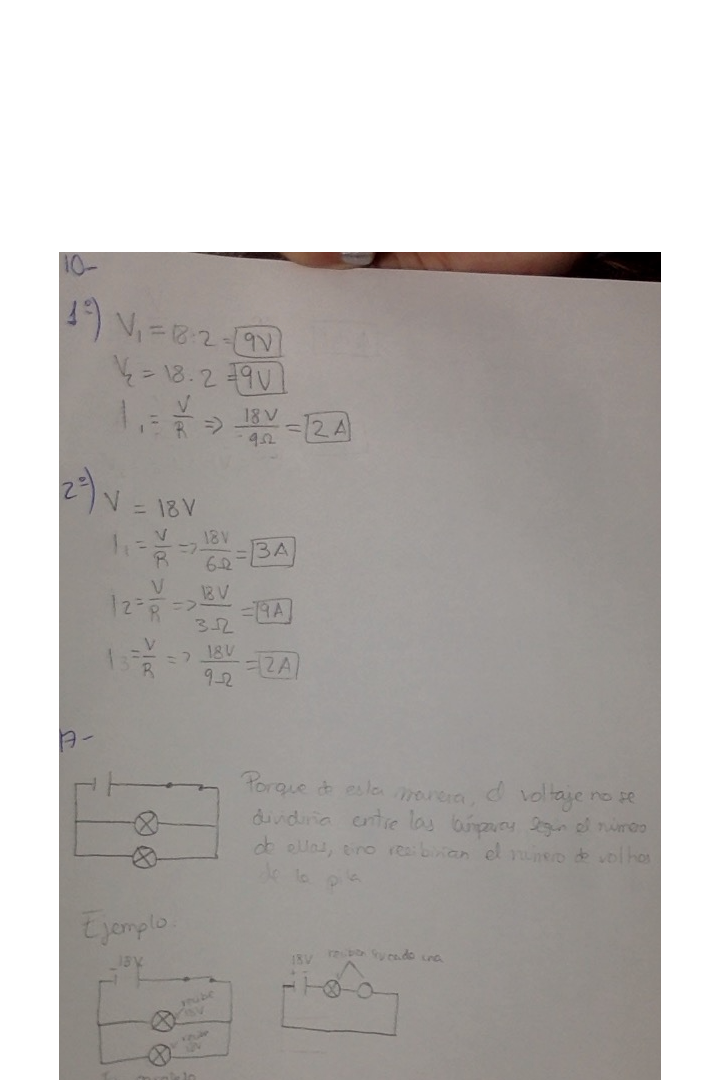 10-
1º) V₁ = 18:2 = 9V
V₂ = 18.2 = 9V
I₁ = V/R => 18V/9Ω = 2A
2º) V = 18V
I₁ = V/R => 18V/6Ω = 3A
I2 = V/R => 18V/3Ω = 9A
I3 = V/R => 18V/9Ω = 2A
17-
Porque de esta manera, el voltaje no se
dividiria entre las lámparas según el número
de ellas, sino recibirian el número de voltios
de la pila
Ejemplo:
18V
recibe
18V
recibe
18V
18V reciben cada una